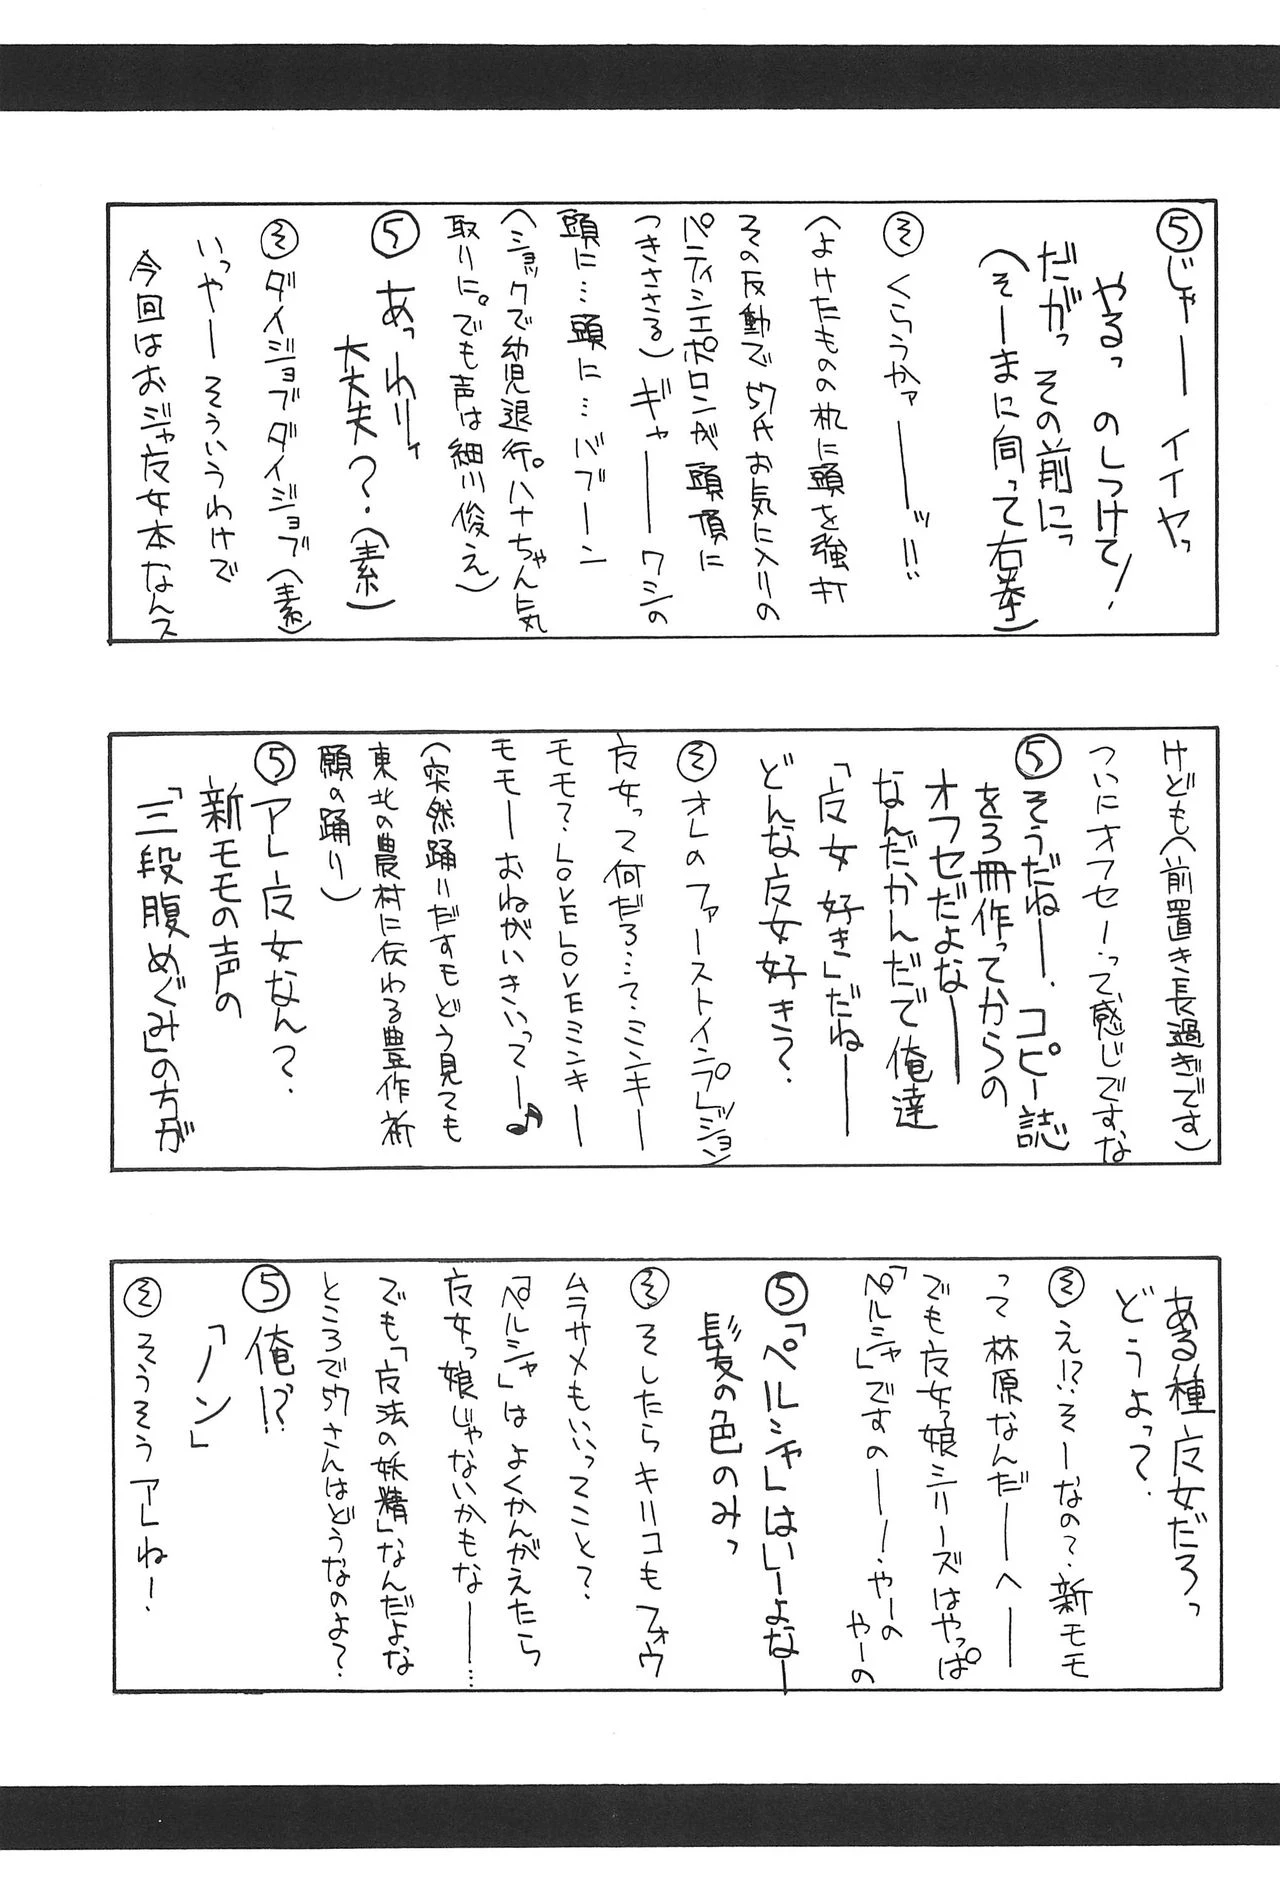 ⑤じゃーー イイヤっ
やるっ のしつけて!
だがっ その前にっ
(そーまに向って右拳)
㋞くらうかァーーーッ!!
(よけたものの机に頭を強打
その反動で57氏お気に入りの
パティシエポロンが頭頂に
つきささる)ギャーーーワシの
頭に…頭に…バブーン
(ショックで幼児退行。ハナちゃん気
取りに。でも声は細川俊え)
⑤あっわりィ
大丈夫?・(素)
㋞ダイジョブダイジョブ(素)
いっやー そういうわけで
今回はおジャ女本なんス
けども(前置き長過ぎです)
ついにオフセーって感じですな
⑤そうだねー、コピー誌
を3冊作ってからの
オフセだよなー
なんだかんだで俺達
「女好き」だねーー
どんな女好き?
㋞オレのファーストインプレジョン
女って何だろ…?ミンキー
モモ?LOVELOVEミンキー
モモーおねがいきいってー♪
(突然踊りだすもどう見ても
東北の農村に伝わる豊作祈
願の踊り)
⑤アレ女なん?
新モモの声の
「三段腹めぐみ」の方が
ある種女だろっ
どうよって?
㋞え!?そーなの?新モモ
って林原なんだーへー
でも女っ娘シリーズはやっぱ
「ペルシャ」ですのー!やーの
やーの
⑤「ペルシャ」はいーよなー
髪の色のみっ
㋞そしたらキリコもフォウ
ムラサメもいいってこと?
「ペルシャ」はよくかんがえたら
女っ娘じゃないかもなーー…
でも「法の妖精」なんだよな
ところで57さんはどうなのよ?
⑤俺!?
「ノン」
㋞そうそうアレねー!